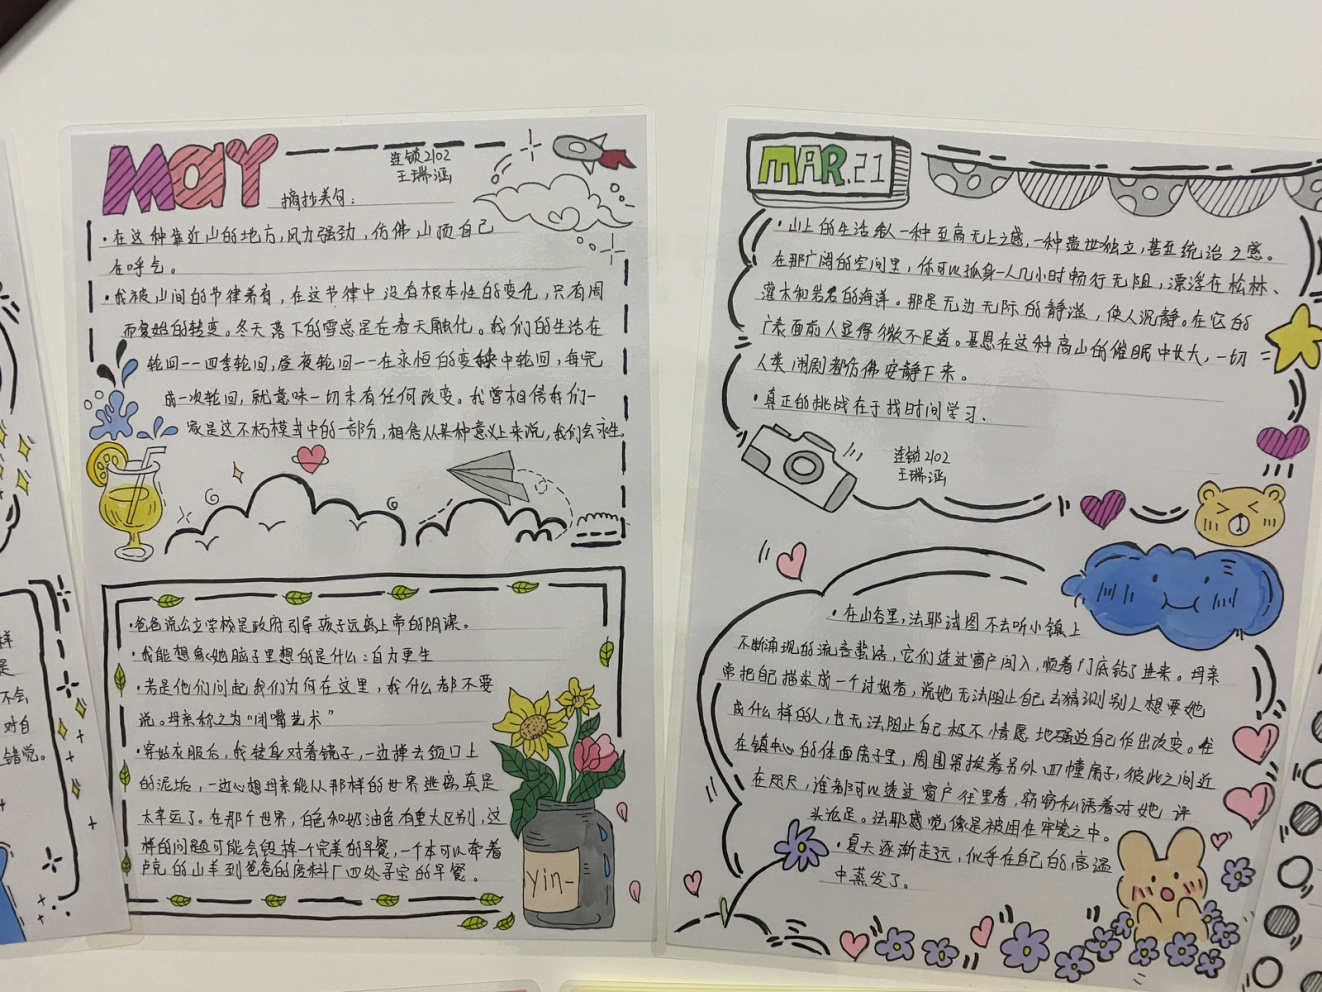 MAY
连锁2102
王瑞涵
摘抄美句:
·在这种靠近山的地方,风力强劲,仿佛山顶自己
在呼气。
·我被山间的节律养育,在这节律中没有根本性的变化,只有周
而复始的转变。冬天落下的雪总是在春天融化。我们的生活在
轮回——四季轮回,昼夜轮回——在永恒的变换中轮回,每完
成一次轮回,就意味一切未有任何改变。我曾相信我们一
家是这不朽模式中的一部分,相信从某种意义上来说,我们会永生。
·爸爸说公立学校是政府引导孩子远离上帝的阴谋。
·我能想象她脑子里想的是什么:自力更生
·若是他们问起我们为何在这里,我什么都不要
说。母亲称之为“闭嘴艺术”
·穿好衣服后,我转身对着镜子,一边擦去领口上
的泥垢,一边心想母亲能从那样的世界逃离真是
太幸运了。在那个世界,白色和奶油色有重大区别,这
样的问题可能会毁掉一个完美的早餐,一个本可以牵着
卢克的山羊到爸爸的废料厂四处寻宝的早餐。
yin-
MAR.21
·山上的生活给人一种至高无上之感,一种遗世独立,甚至统治之感。
在那广阔的空间里,你可以孤身一人几小时畅行无阻,漂浮在松林、
灌木和岩石的海洋。那是无边无际的静谧,使人沉静。在它的
广袤面前人显得微不足道。基恩在这种高山的催眠中长大,一切
人类闹剧都仿佛安静下来。
·真正的挑战在于找时间学习、
连锁2102
王瑞涵
·在山谷里,法耶试图不去听小镇上
不断涌现的流言蜚语,它们透过窗户闯入,顺着门底钻了进来。母亲
常把自己描述成一个讨好者,说她无法阻止自己去猜测别人想要她
成什么样的人,也无法阻止自己极不情愿地强迫自己作出改变。住
在镇中心的体面房子里,周围紧挨着另外四幢房子,彼此之间近
在咫尺,谁都可以透过窗户往里看,窃窃私语着对她评
头论足。法耶感觉像是被困在牢笼之中。
·夏天逐渐走远,似乎在自己的高温
中蒸发了。
样
是
不会
对自
错觉。